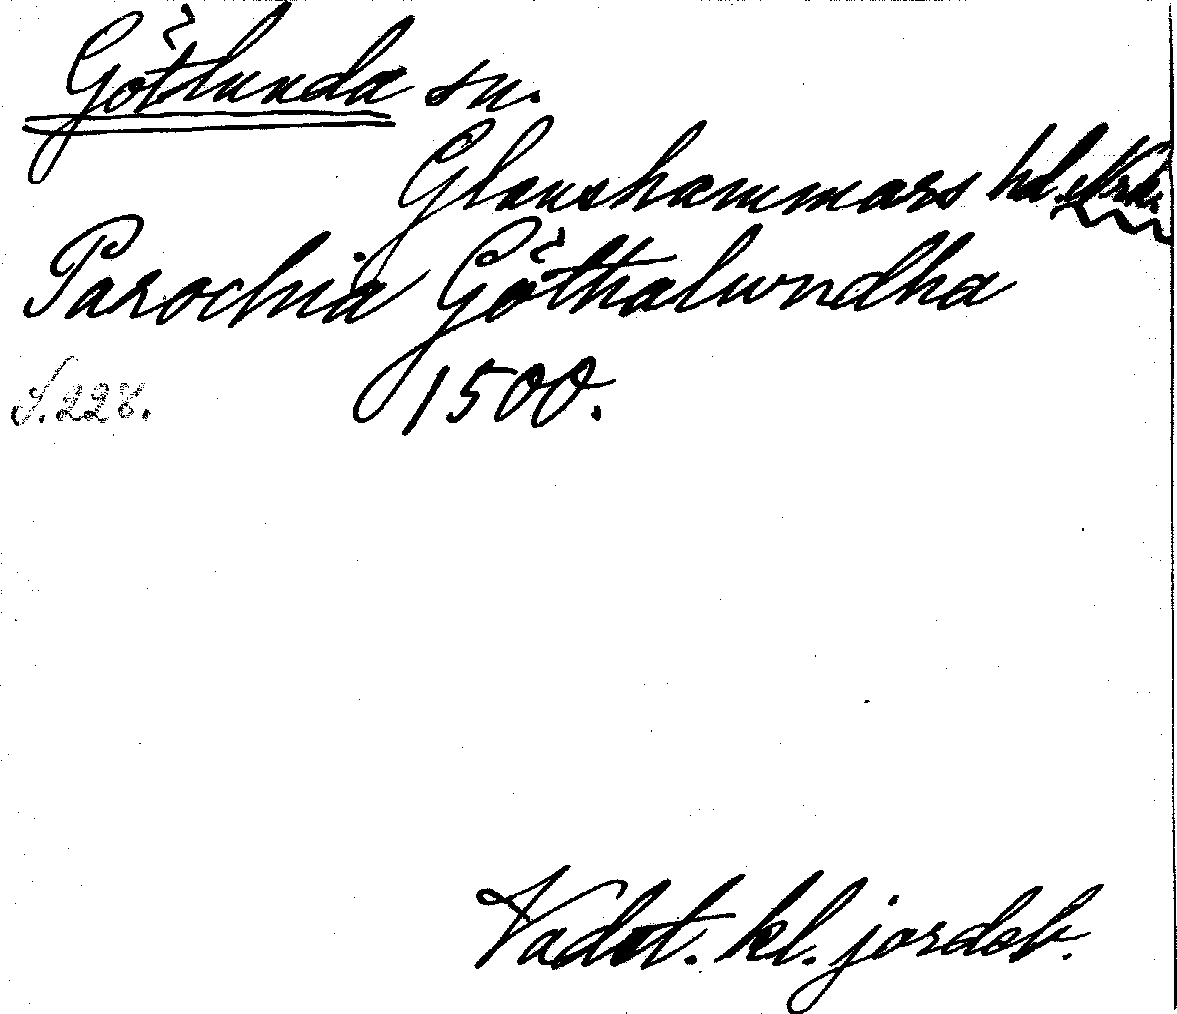 Götlunda sn.
Glanshammars hd. Närke.
Parochia Göthalundha
S. 228. 1500.
Vadst. kl. jordeb.